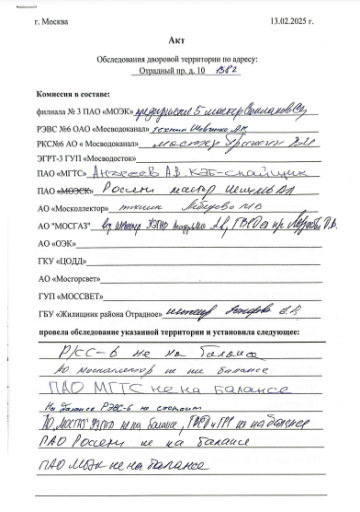 г. Москва 13.02.2025 г.
Акт
Обследования дворовой территории по адресу:
Отрадный пр. д. 10
Комиссия в составе:
филиала № 3 ПАО «МОЭК» 5 мастер
РЭВС №6 ОАО «Мосводоканал» техник
РКС№6 АО « Мосводоканал» мастер
ЭГРТ-3 ГУП «Мосводосток»
ПАО «МГТС» Андреев А.В. каб-спайщик
ПАО «МОЭСК» Россети мастер
АО «Москоллектор» техник
АО "МОСГАЗ"
АО «ОЭК»
ГКУ «ЦОДД»
АО «Мосгорсвет»
ГУП «МОССВЕТ»
ГБУ «Жилищник района Отрадное»
провела обследование указанной территории и установила следующее:
РКС-6 не на балансе
АО Москоллектор не на балансе
ПАО МГТС не на балансе
На балансе РЭВС-6 не состоит
АО "МОСГАЗ" не на балансе, не на балансе
ПАО Россети не на балансе
ПАО МОЭК не на балансе